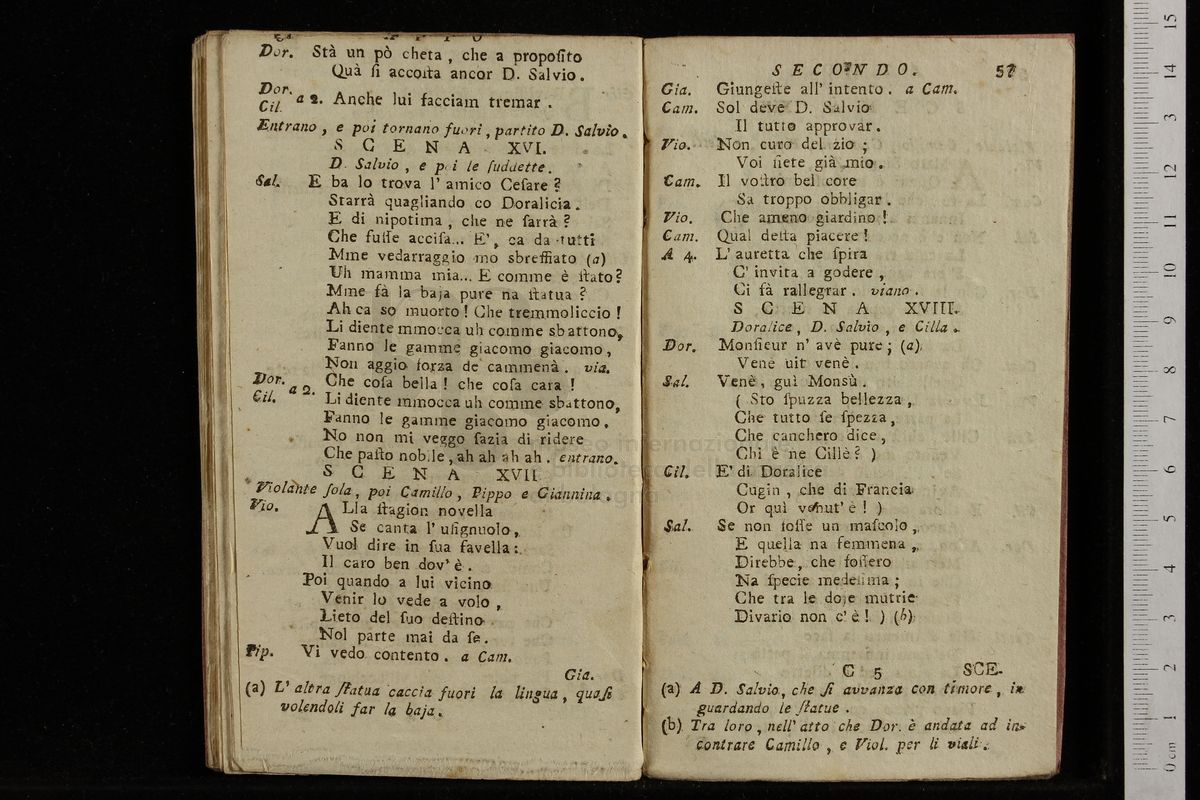 Dor. Stà un pò cheta , che a propoſito
Quà ſi accoſta ancor D. Salvio.
Dor.
Cil. a 2. Anche lui facciam tremar .
Entrano , e poi tornano fuori , partito D. Salvio.
S C E N A XVI.
D. Salvio , e poi le ſuddette.
Sal. E ba lo trova l' amico Ceſare ?
Starrà quagliando co Doralicia .
E di nipotima , che ne ſarrà ?
Che fuſſe acciſa... E', ca da tutti
Mme vedarraggio mo sbreffiato (a)
Uh mamma mia... E comme è ſtato ?
Mme fà la baja pure na ſtatua ?
Ah ca so muorto ! Che tremmoliccio !
Li diente mmocca uh comme sbattono,
Fanno le gamme giacomo giacomo ,
Non aggio forza de cammenà . via.
Dor.
Cil. a 2. Che coſa bella ! che coſa cara !
Li diente mmocca uh comme sbattono,
Fanno le gamme giacomo giacomo.
No non mi veggo ſazia di ridere
Che paſto nobile , ah ah ah ah . entrano.
S C E N A XVII.
Violante ſola, poi Camillo , Pippo e Giannina .
Vio. ALla ſtagion novella
Se canta l' uſignuolo ,
Vuol dire in ſua favella :
Il caro ben dov' è .
Poi quando a lui vicino
Venir lo vede a volo ,
Lieto del ſuo deſtino
Nol parte mai da ſe .
Pip. Vi vedo contento . a Cam.
Gia.
(a) L' altra ſtatua caccia fuori la lingua , quaſi
volendoli far la baja .
S E C O N D O. 57
Gia. Giungeſte all' intento . a Cam.
Cam. Sol deve D. Salvio
Il tutto approvar .
Vio. Non curo del zio ;
Voi ſiete già mio .
Cam. Il voſtro bel core
Sa troppo obbligar .
Vio. Che ameno giardino !
Cam. Qual deſta piacere !
A 4. L' auretta che ſpira
C' invita a godere ,
Ci fà rallegrar . viano .
S C E N A XVIII.
Doralice , D. Salvio , e Cilla .
Dor. Monſieur n' avè pure ; (a)
Venè uit venè .
Sal. Venè, guì Monsù .
( Sto ſpuzza bellezza ,
Che tutto ſe ſpezza ,
Che canchero dice ,
Chi è ne Cillè ? )
Cil. E' di Doralice
Cugin , che di Francia
Or quì venut' è ! )
Sal. Se non foſſe un maſcolo ,
E quella na femmena ,
Direbbe , che foſſero
Na ſpecie medeſima ;
Che tra le doje mutrie
Divario non c' è ! ) (b)
C 5 SCE-
(a) A D. Salvio, che ſi avvanza con timore , in
guardando le ſtatue .
(b) Tra loro , nell' atto che Dor. è andata ad in-
contrare Camillo , e Viol. per li viali .